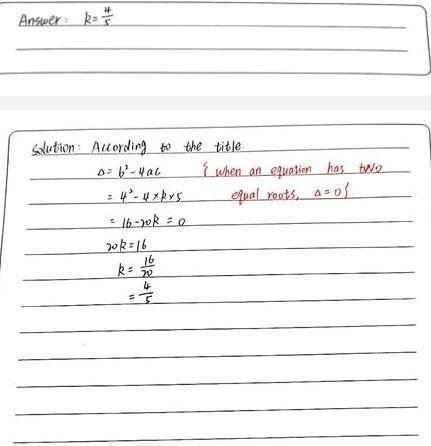 Answer: k = 4/5
Solution: According to the title.
Δ = b² - 4ac { when an equation has two
= 4² - 4×k×5 equal roots, Δ = 0}
= 16 - 20k = 0
20k = 16
k = 16/20
= 4/5